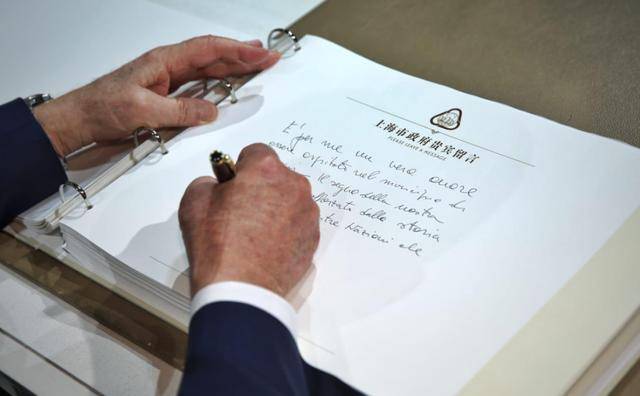 上海市政府贵宾留言
PLEASE LEAVE A MESSAGE
E' per me un vero onore
essere ospitato nel municipio di
Il segno della nostra
dalla storia
Nazioni che